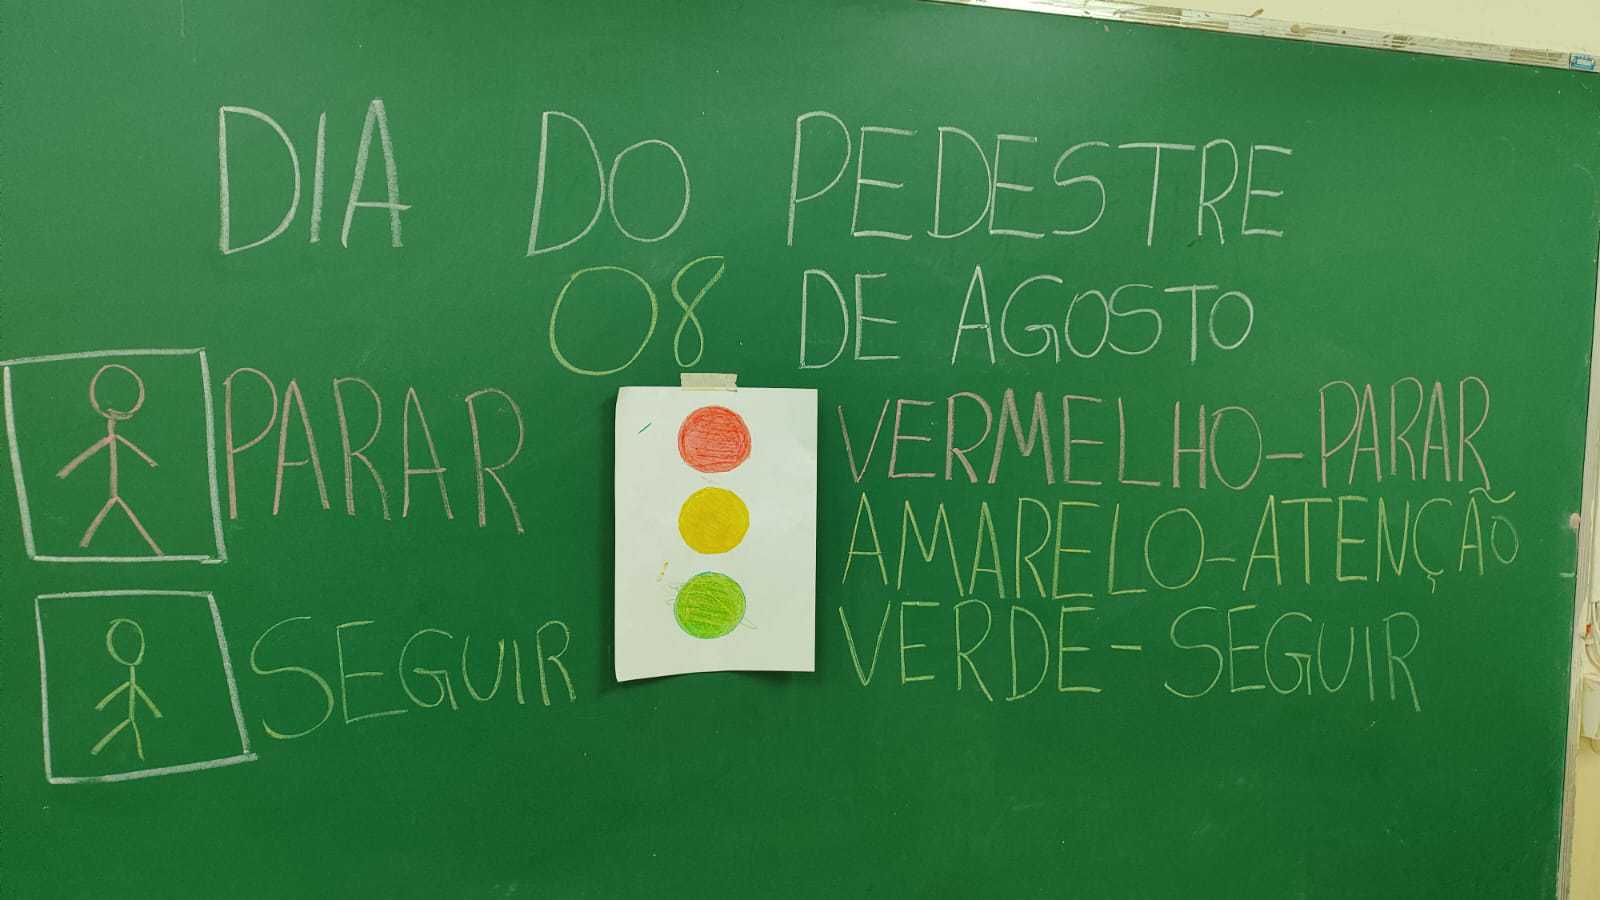 DIA DO PEDESTRE
08 DE AGOSTO
PARAR
SEGUIR
VERMELHO-PARAR
AMARELO-ATENÇÃO
VERDE-SEGUIR